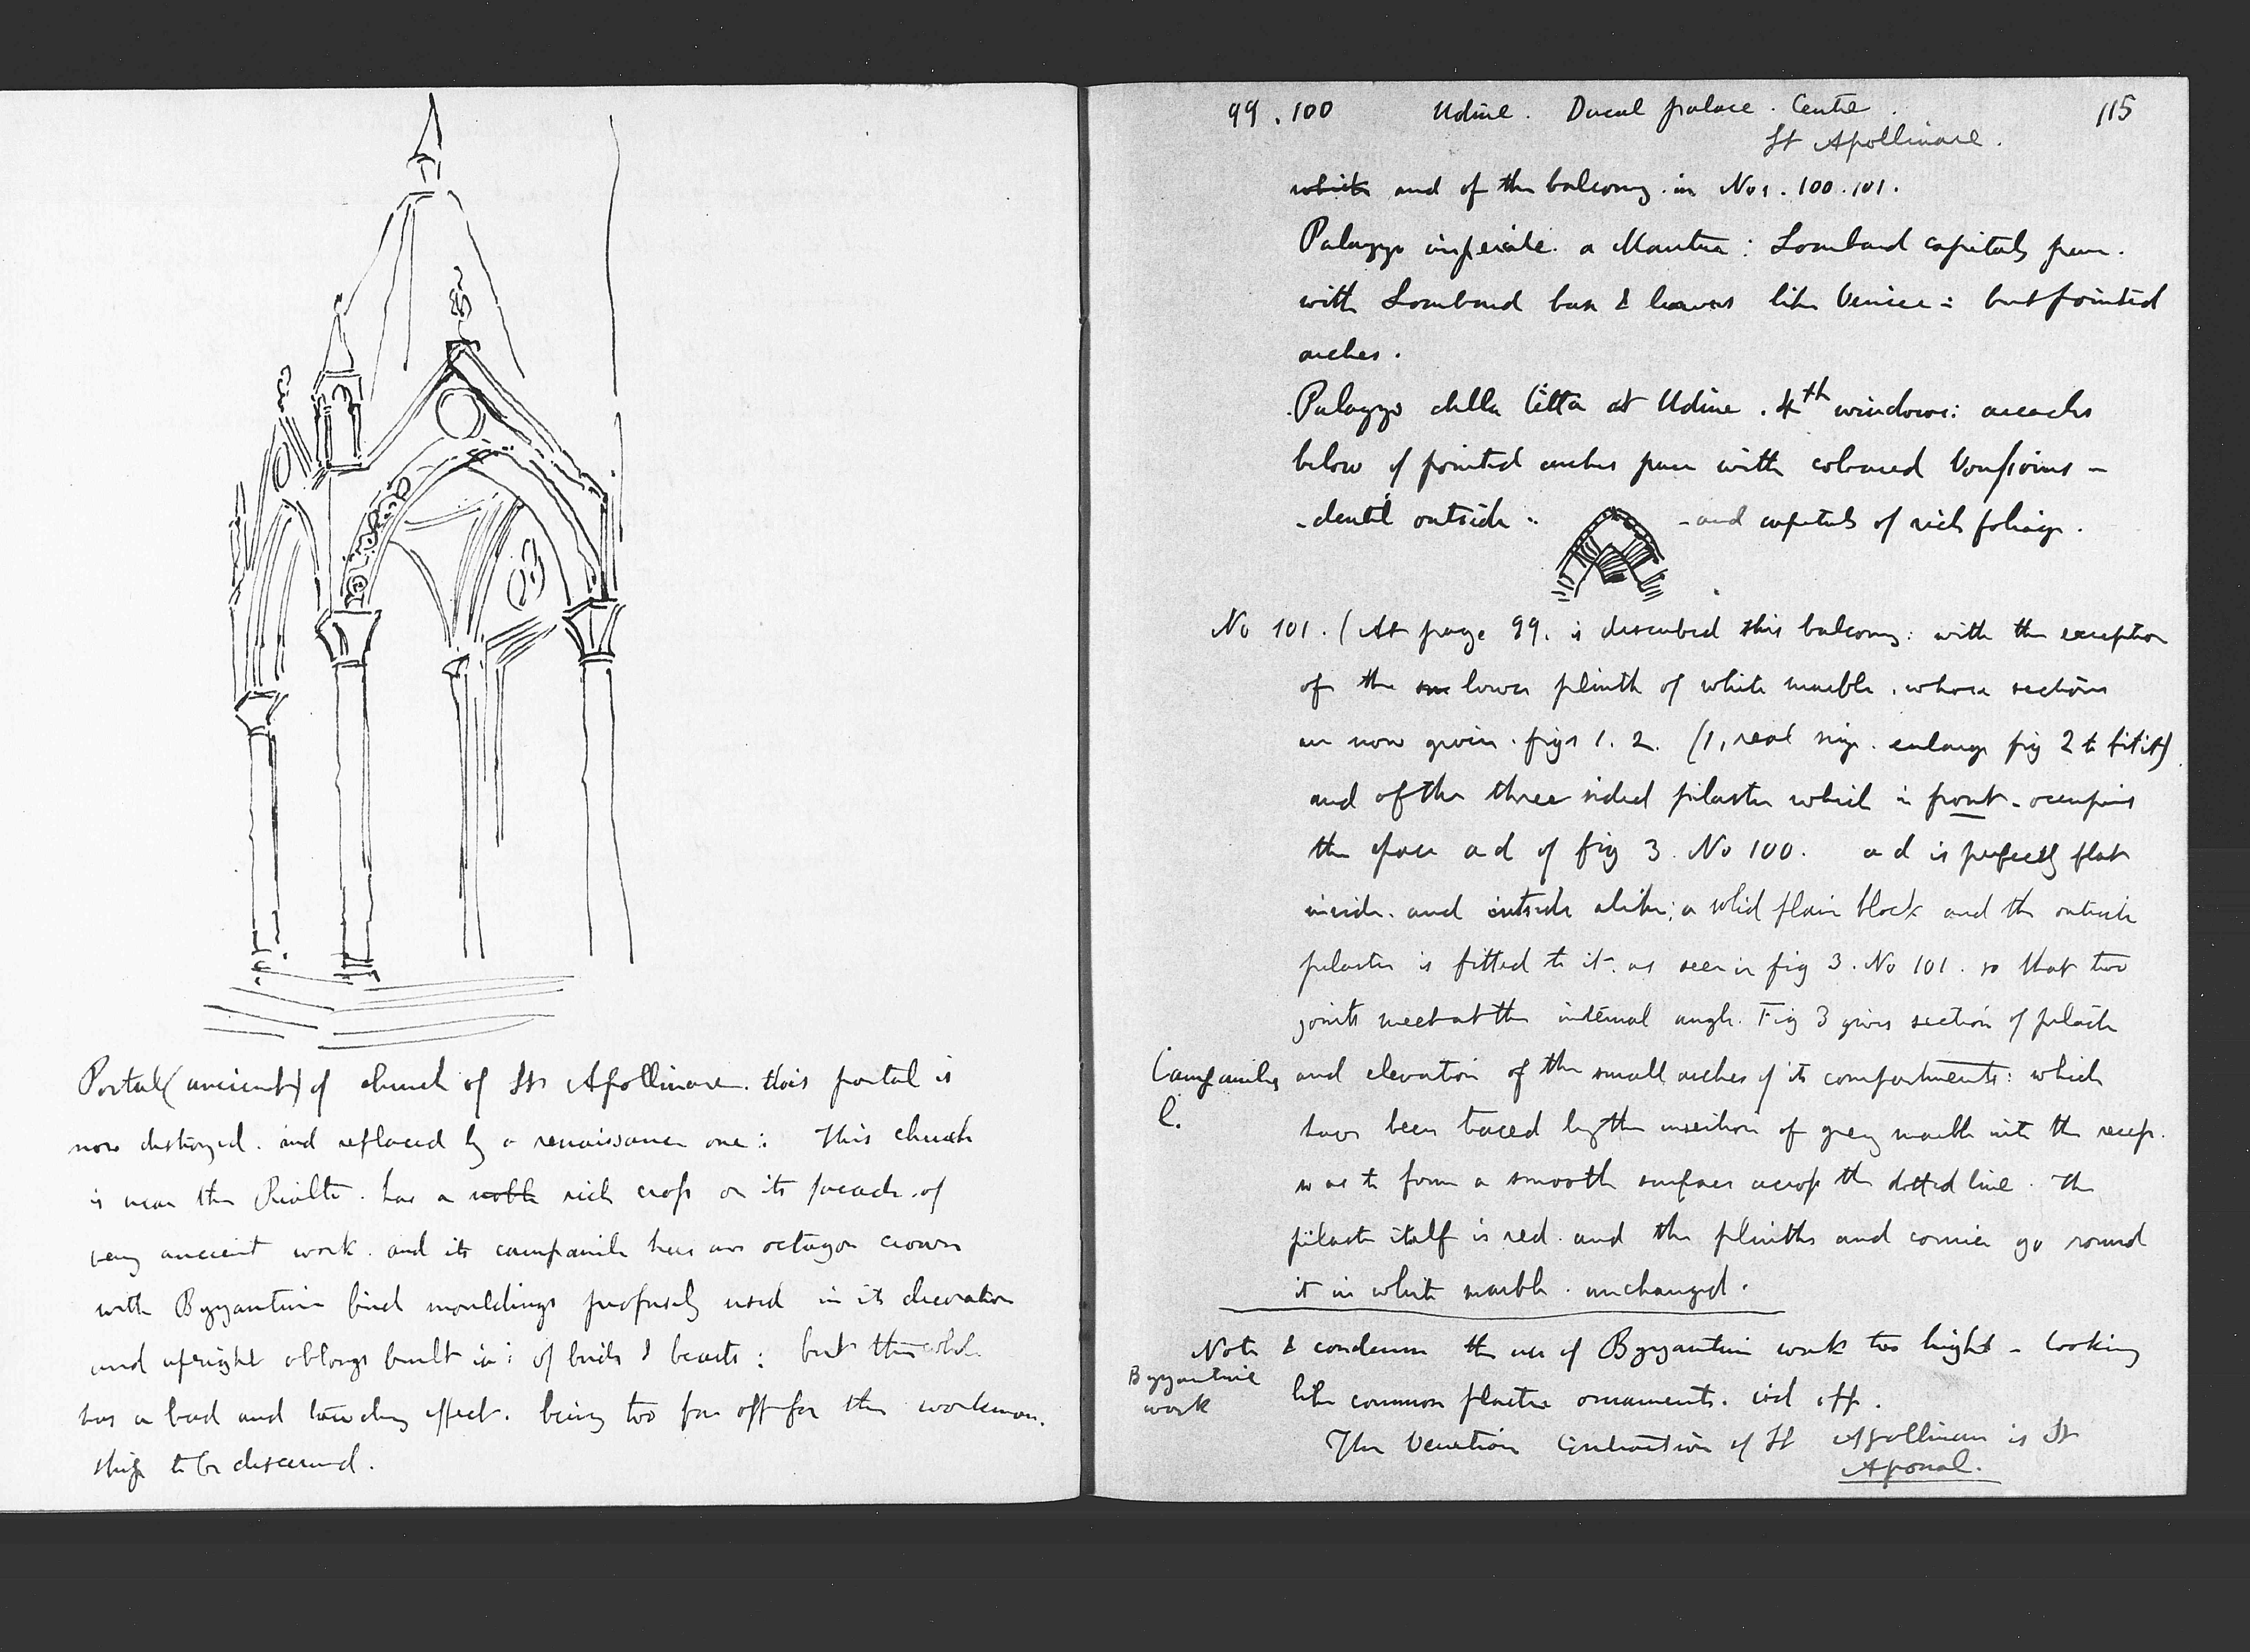 Portal (ancient) of church of St Apollinare. this portal is
now destroyed. and replaced by a renaissance one: This church
is near the Rialto. has a noble rich cross on its facade. of
very ancient work. and its campanile has an octagon crown
with Byzantine bird mouldings profusely used in its decoration
and upright oblongs built in: of birds & beasts: but the whole
has a bad and tawdry effect. being too far off for the workman.
ship to be discerned.
99. 100 Udine. Ducal palace. Centre. 115
St Apollinare.
which and of the balcony. in Nos. 100. 101.
Palazzo imperiale. a Mantua: Lombard capitals pure.
with Lombard base & leaves like Venice: but pointed
arches.
Palazzo della Citta at Udine. 4th windows: arcades
below of pointed arches pure with coloured Voussoirs -
- dentil outside: - and capitals of rich foliage.
No 101. (At page 99. is described this balcony: with the exception
of the lower plinth of white marble. whose sections
are now given. figs 1. 2. (1, real size. enlarge fig 2 to fit it)
and of the three sided pilaster which in front - occupies
the space a d of fig 3. No 100. a d is perfectly flat
inside. and outside alike; a solid plain block and the outside
pilaster is fitted to it. as seen in fig 3. No 101. so that two
joints meet at the internal angle. Fig 3 gives section of pilaster
Campaniles and elevation of the small arches of its compartments: which
C. have been traced by the insertion of grey marble into the recess.
so as to form a smooth surface across the dotted line. The
pilaster itself is red. and the plinths and cornice go round
it in white marble. unchanged.
Note & condemn the use of Byzantine work too high - looking
Byzantine
work like common plaster ornaments.
The Venetian Contraction of St Apollinare is St
Aponal.